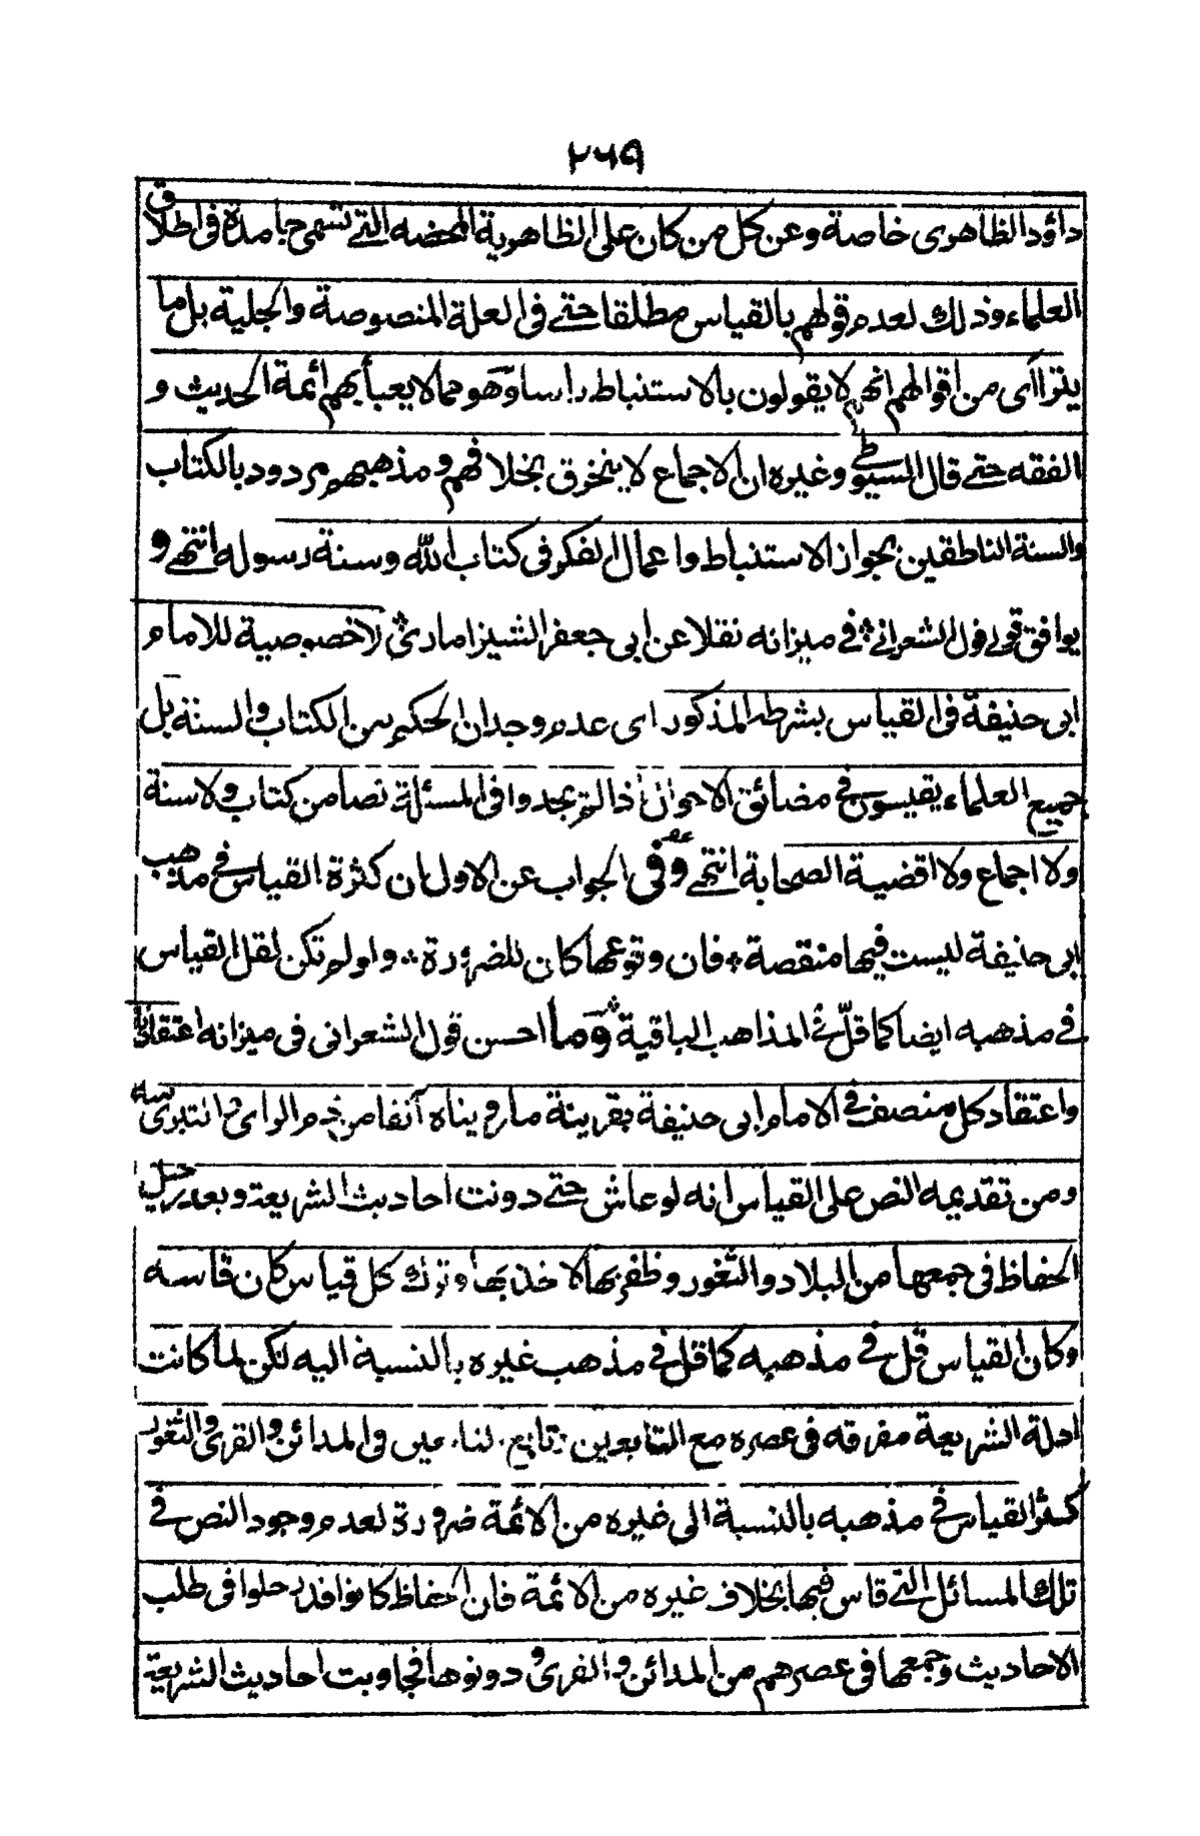 ٢٦٩
داؤد الظاهرى خاصة وعن كل من كان على الظاهرية المحضه التى تسمى جامدة فى اطلاق
العلماء وذلك لعدم قولهم بالقياس مطلقا حتى فى العلة المنصوصة والجلية بل ما
يتراأى من اقوالهم انهم لا يقولون بالاستنباط راسا وهو مما لا يعبأ بهم ائمة الحديث و
الفقه حتى قال السيوطى وغيره ان الاجماع لا ينخرق بخلافهم ومذهبهم مردود بالكتاب
والسنة الناطقين بجواز الاستنباط واعمال الفكر فى كتاب الله وسنة رسوله انتهى و
يوافق قولى قول الشعرانى فى ميزانه نقلا عن ابى جعفر الشيزامارى لاخصوصية للامام
ابى حنيفة فى القياس بشرطه المذكور اى عدم وجدان الحكم من الكتاب والسنة بل
جميع العلماء يقيسون فى مضائق الاحوال اذا لم يجدوا فى المسئلة نصا من كتاب ولا سنة
ولا اجماع ولا اقضية الصحابة انتهى وفى الجواب عن الاول ان كثرة القياس فى مذهب
ابى حنيفة ليست فيها منقصة فان وقوعها كان للضرورة ولو لم تكن لقل القياس
فى مذهبه ايضا كما قلّ فى المذاهب الباقية وما احسن قول الشعرانى فى ميزانه اعتقادنا
واعتقاد كل منصف فى الامام ابى حنيفة بقرينة ما رويناه آنفا من ذم الراى والتبرى منه
ومن تقديمه النص على القياس انه لو عاش حتى دونت احاديث الشريعة وبعد رحيل
الحفاظ فى جمعها من البلاد والثغور وظفر بها لاخذ بها وترك كل قياس كان قاسه
وكان القياس قل فى مذهبه كما قل فى مذهب غيره بالنسبة اليه لكن لما كانت
ادلة الشريعة مفرقه فى عصره مع التابعين وتابع التابعين فى المدائن والقرى والثغور
كثر القياس فى مذهبه بالنسبة الى غيره من الائمة ضرورة لعدم وجود النص فى
تلك المسائل التى قاس فيها بخلاف غيره من الائمة فان الحفاظ كانوا قد رحلوا فى طلب
الاحاديث وجمعها فى عصرهم من المدائن والقرى ودونوها فجاوبت احاديث الشريعة